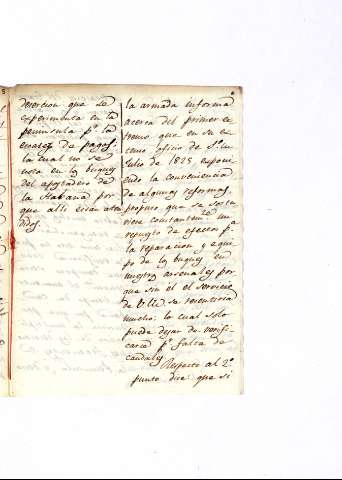 desercion que se
experimenta en la
peninsula pr. la
escasez de pagos;
la cual no se
nota en los buques
del apostadero de
la Habana por
que alli estan aten
didos.
la armada informa
acerca del primer es
tremo que en su es
tenso oficio de
Julio de 1825 esponi
endo la conveniencia
de algunas reformas,
propuso que se sostu
viere constantemte. un
repuesto de efectos pa.
la reparacion y equi
po de los buques en
nuestros arsenales por
que sin él el servicio
de V.M. se resentiria
mucho; lo cual solo
puede dejar de verifi
carse pr. falta de
caudales.
Respecto al 2o.
punto dice que si